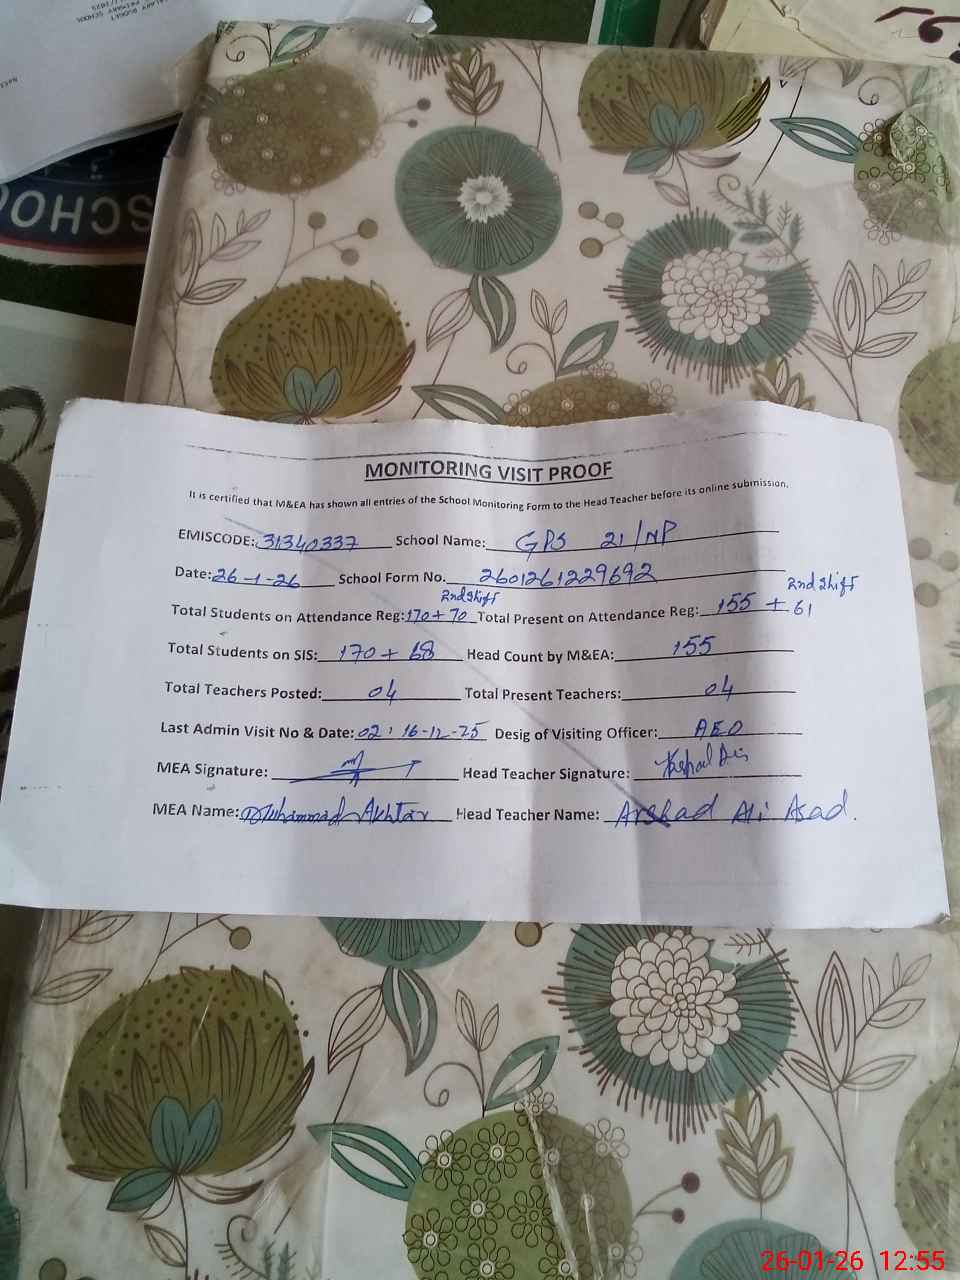 SALARY BUDGET
PRIMARY SCHOOL
SCHOO
MONITORING VISIT PROOF
It is certified that M&EA has shown all entries of the School Monitoring Form to the Head Teacher before its online submission.
EMISCODE: 31340337 School Name: GPS 21/NP
Date: 26-1-26 School Form No. 2601261229692
2nd shift 2nd shift
Total Students on Attendance Reg: 170 + 70 Total Present on Attendance Reg: 155 + 61
Total Students on SIS: 170 + 68 Head Count by M&EA: 155
Total Teachers Posted: 04 Total Present Teachers: 04
Last Admin Visit No & Date: 02 : 16-12-25 Desig of Visiting Officer: AEO
MEA Signature: Head Teacher Signature:
MEA Name: Muhammad Akhtar Head Teacher Name: Arshad Ali Asad.
26-01-26 12:55